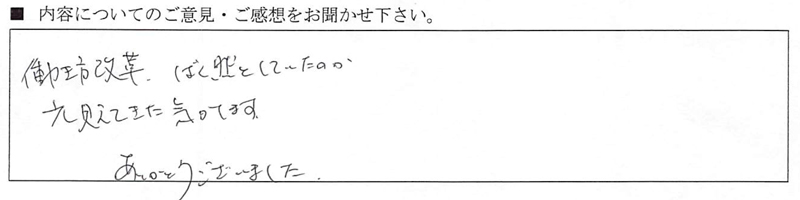 ■ 内容についてのご意見・ご感想をお聞かせ下さい。
働き方改革、ばく然としていたのが
見えてきた気がします
ありがとうございました.